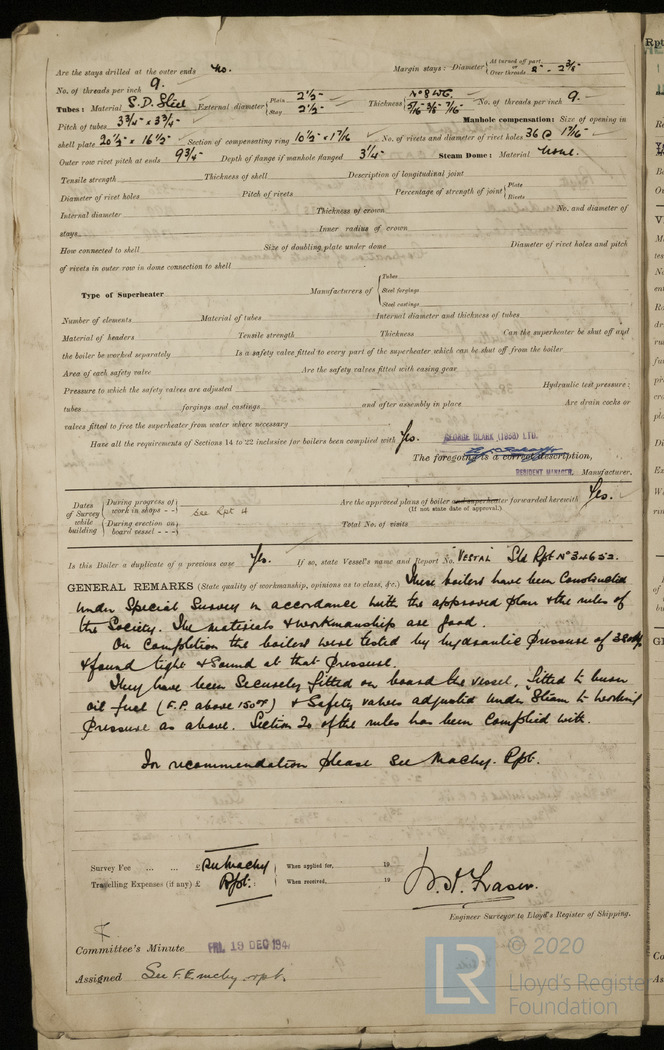 Are the stays drilled at the outer ends No. Margin stays: Diameter { At turned off part or Over threads 2 3/8"
No. of threads per inch 9.
Tubes: Material S.D. Steel External diameter { Plain 2 1/2" Stay 2 1/2" Thickness { No 8 WG 5/16" 3/8" 7/16" No. of threads per inch 9.
Pitch of tubes 3 3/4" x 3 3/4" Manhole compensation: Size of opening in
shell plate 20 1/2" x 16 1/2" Section of compensating ring 10 1/2" x 1 7/16" No. of rivets and diameter of rivet holes 36 @ 1 7/16"
Outer row rivet pitch at ends 9 3/4" Depth of flange if manhole flanged 3 1/4" Steam Dome: Material None.
Tensile strength Thickness of shell Description of longitudinal joint
Diameter of rivet holes Pitch of rivets Percentage of strength of joint { Plate Rivets
Internal diameter Thickness of crown No. and diameter of
stays Inner radius of crown
How connected to shell Size of doubling plate under dome Diameter of rivet holes and pitch
of rivets in outer row in dome connection to shell
Type of Superheater Manufacturers of { Tubes Steel forgings Steel castings
Number of elements Material of tubes Internal diameter and thickness of tubes
Material of headers Tensile strength Thickness Can the superheater be shut off and
the boiler be worked separately Is a safety valve fitted to every part of the superheater which can be shut off from the boiler
Area of each safety valve Are the safety valves fitted with easing gear
Pressure to which the safety valves are adjusted Hydraulic test pressure:
tubes forgings and castings and after assembly in place Are drain cocks or
valves fitted to free the superheater from water where necessary
Have all the requirements of Sections 14 to 22 inclusive for boilers been complied with Yes.
GEORGE CLARK (1938) LTD.
The foregoing is a correct description,
RESIDENT MANAGER. Manufacturer.
Dates of Survey while building { During progress of work in shops - - } See Rpt 4 { During erection on board vessel - - - }
Are the approved plans of boiler and superheater forwarded herewith Yes.
(If not state date of approval.)
Total No. of visits
Is this Boiler a duplicate of a previous case Yes. If so, state Vessel's name and Report No. "VESTAL" Sld Rpt No 34652.
GENERAL REMARKS (State quality of workmanship, opinions as to class, &c.) These boilers have been Constructed
under Special Survey in accordance with the approved plans & the rules of
the Society. The materials & workmanship are good.
On Completion the boilers were tested by hydraulic pressure of 380 lbs
& found tight & Sound at that pressure.
They have been Securely fitted on board the vessel, fitted to burn
oil fuel (F.P. above 150°F) & Safety valves adjusted under Steam to working
pressure as above. Section 20 of the rules has been Complied with.
For recommendation please see Machy. Rpt.
Survey Fee ... ... £ See Machy When applied for, 19
Travelling Expenses (if any) £ Rpt. When received, 19
Fraser.
Engineer Surveyor to Lloyd's Register of Shipping.
Committee's Minute FRI. 19 DEC 194
Assigned See F.E. mchy rpt.
LR © 2020
Lloyd's Register
Foundation